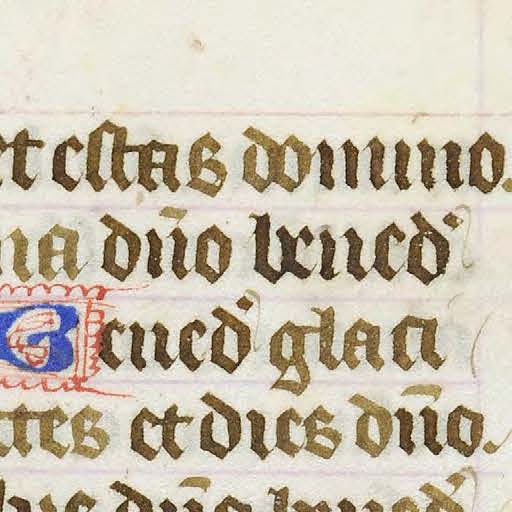 et estas domino.
na dn̄o bened̛
Bened̛ glaci
ctes et dies dn̄o.
dn̄o bened̛